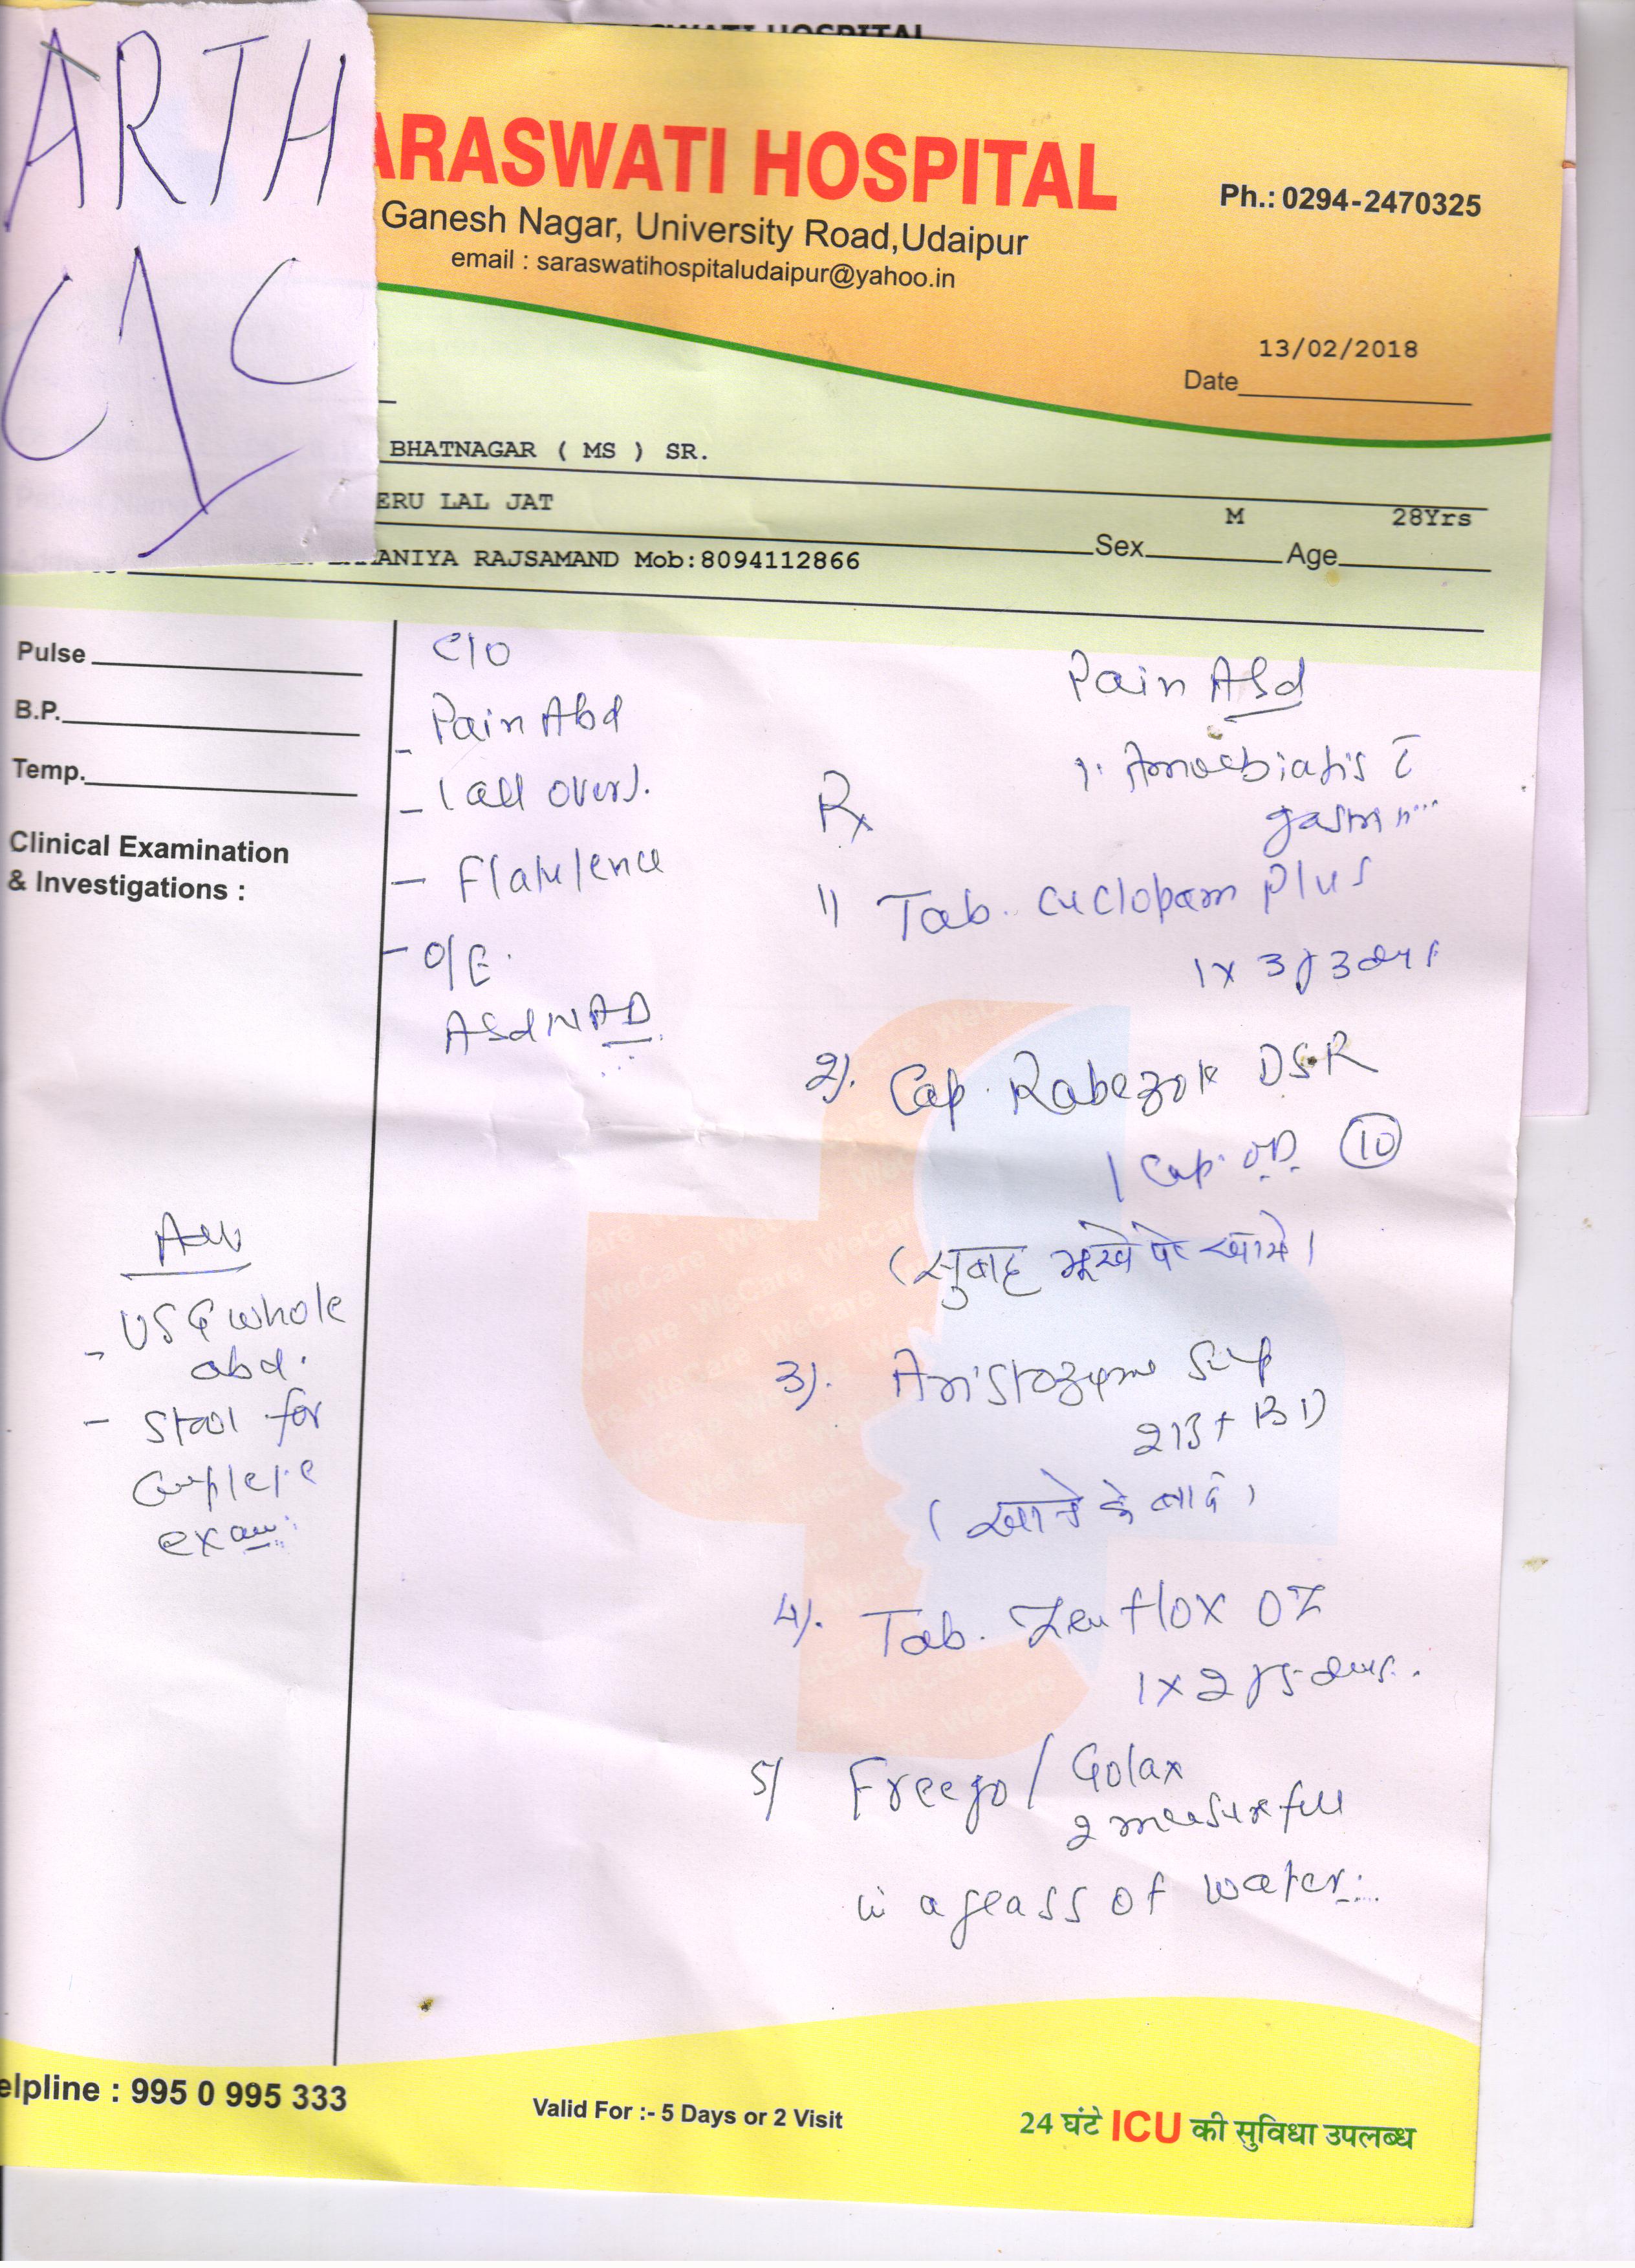 SWATI HOSPITAL
ARTH
C/C
ARASWATI HOSPITAL
Ph.: 0294-2470325
Ganesh Nagar, University Road,Udaipur
email : saraswatihospitaludaipur@yahoo.in
13/02/2018
Date
BHATNAGAR ( MS ) SR.
ERU LAL JAT
M 28Yrs
Sex Age
ANIYA RAJSAMAND Mob:8094112866
Pulse
B.P.
Temp.
Clinical Examination
& Investigations :
C/O
- Pain Abd
- (all over).
- Flatulence
- O/E.
Abd NAD
Adv
- USG whole
abd.
- Stool for
Complete
exam
Pain Abd
1. Amoebiatis c̄
Rx
1) Tab. Cyclopam Plus
1 x 3 x 3 days
2). Cap. Rabezole DSR
1 Cap. OD. 10
(सुबह भूखे पेट खाये)
3). Aristozyme Syp
BD
(खाने के बाद)
4). Tab. Zenflox OZ
1 x 2 x 5 days.
5) Freego / Golax
2 measure full
in a glass of water
elpline : 995 0 995 333
Valid For :- 5 Days or 2 Visit
24 घंटे ICU की सुविधा उपलब्ध